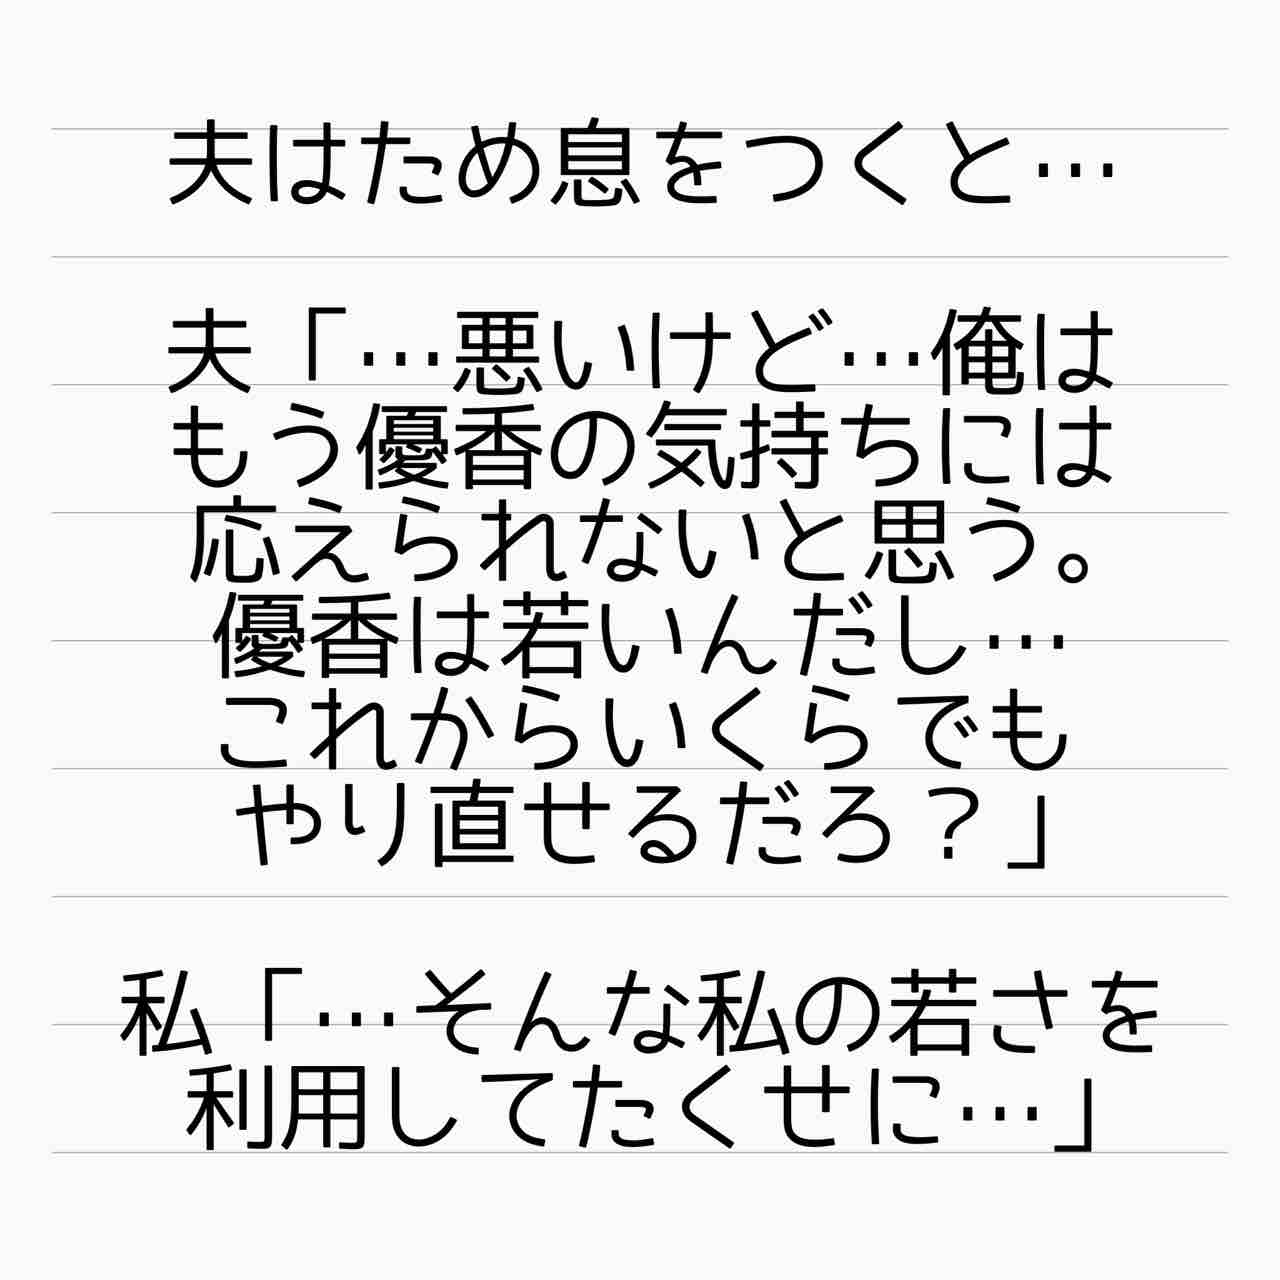 夫はため息をつくと…
夫「…悪いけど…俺は
もう優香の気持ちには
応えられないと思う。
優香は若いんだし…
これからいくらでも
やり直せるだろ？」
私「…そんな私の若さを
利用してたくせに…」